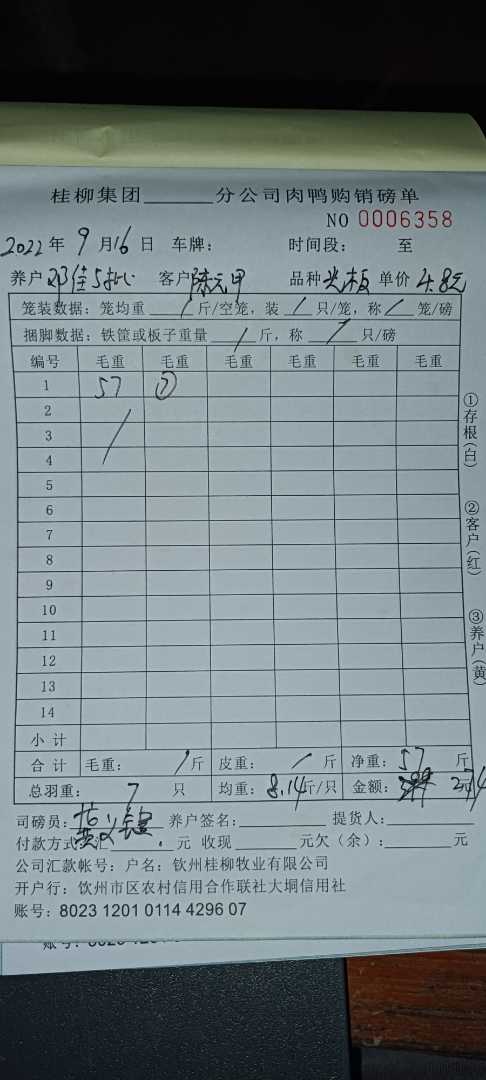 桂柳集团______分公司肉鸭购销磅单
NO 0006358
2022年 9月16日 车牌： 时间段： 至
养户 邓佳 客户 陈元甲 品种 光板 单价 4.8元
笼装数据：笼均重 / 斤/空笼，装 / 只/笼，称 / 笼/磅
捆脚数据：铁筐或板子重量 / 斤，称 / 只/磅
编号 毛重 毛重 毛重 毛重 毛重 毛重
1 57 ⑦
2
3 /
4
5
6
7
8
9
10
11
12
13
14
小计
合计 毛重： / 斤 皮重： / 斤 净重：57 斤
总羽重： 7 只 均重：8.14斤/只 金额： 274元
司磅员： 养户签名： 提货人：
付款方式：汇 元 收现 元欠（余）： 元
公司汇款帐号：户名：钦州桂柳牧业有限公司
开户行：钦州市区农村信用合作联社大垌信用社
账号：8023 1201 0114 4296 07
①存根（白）
②客户（红）
③养户（黄）